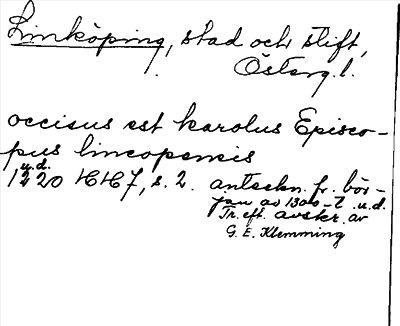 Linköping, stad och stift,
Österg. l.
occisus est karolus Episco-
pus lincopensis
u.d.
1220 HH 7, s. 2. anteckn. fr. bör-
jan av 1300-t. u.d.
Tr. eft. avskr. av
G. E. Klemming